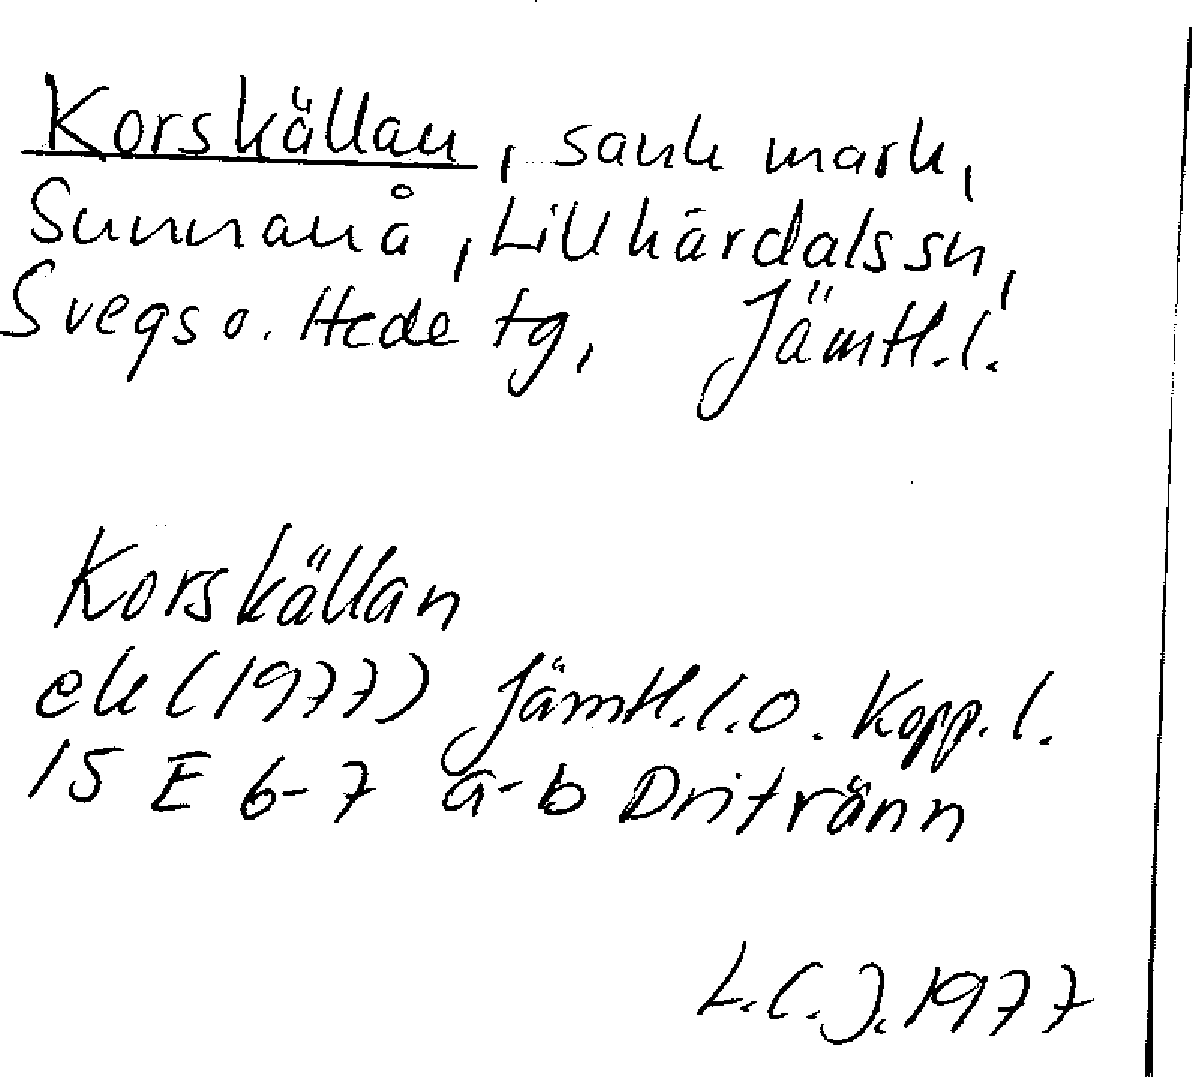 Korskällan, sank mark,
Sunnanå, Lillhärdals sn,
Svegs o. Hede tg, Jämtl. l.
Korskällan
ek (1977) Jämtl. l. o. Kopp. l.
15 E 6-7 a-b Dritränn
L.C.J. 1977